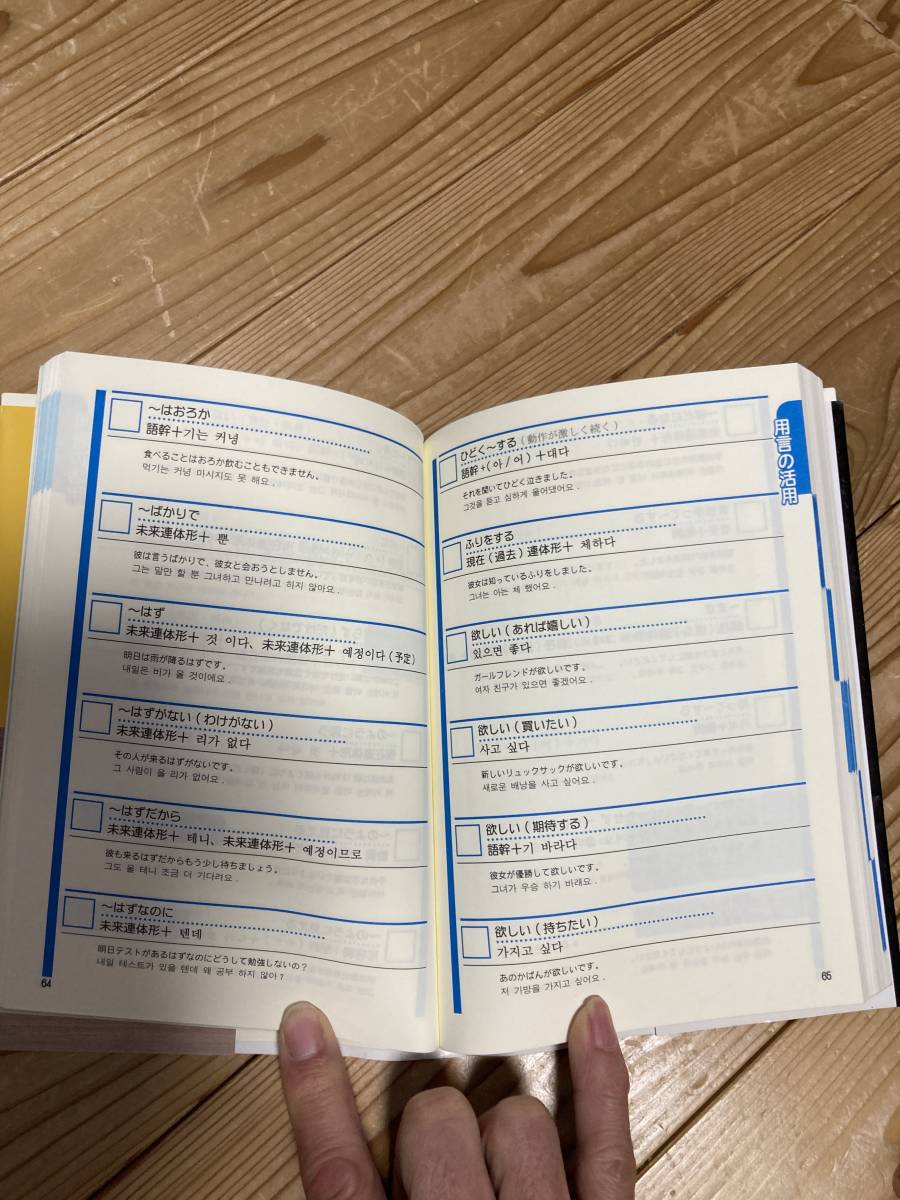 ～はおろか
語幹＋기는 커녕
食べることはおろか飲むこともできません。
먹기는 커녕 마시지도 못 해요.
～ばかりで
未来連体形＋ 뿐
彼は言うばかりで、彼女と会おうとしません。
그는 말만 할 뿐 그녀하고 만나려고 하지 않아요.
～はず
未来連体形＋ 것 이다、未来連体形＋ 예정이다(予定)
明日は雨が降るはずです。
내일은 비가 올 것이에요.
～はずがない(わけがない)
未来連体形＋ 리가 없다
その人が来るはずがないです。
그 사람이 올 리가 없어요.
～はずだから
未来連体形＋ 테니、未来連体形＋ 예정이므로
彼も来るはずだからもう少し待ちましょう。
그도 올 테니 조금 더 기다려요.
～はずなのに
未来連体形＋ 텐데
明日テストがあるはずなのにどうして勉強しないの？
내일 테스트가 있을 텐데 왜 공부 하지 않아？
64
用言の活用
ひどく～する(動作が激しく続く)
語幹+(아/어)＋대다
それを聞いてひどく泣きました。
그것을 듣고 심하게 울어댔어요.
ふりをする
現在(過去)連体形＋ 체하다
彼女は知っているふりをしました。
그녀는 아는 체 했어요.
欲しい(あれば嬉しい)
있으면 좋다
ガールフレンドが欲しいです。
여자 친구가 있으면 좋겠어요.
欲しい(買いたい)
사고 싶다
新しいリュックサックが欲しいです。
새로운 배낭을 사고 싶어요.
欲しい(期待する)
語幹＋기 바라다
彼女が優勝して欲しいです。
그녀가 우승 하기 바래요.
欲しい(持ちたい)
가지고 싶다
あのかばんが欲しいです。
저 가방을 가지고 싶어요.
65